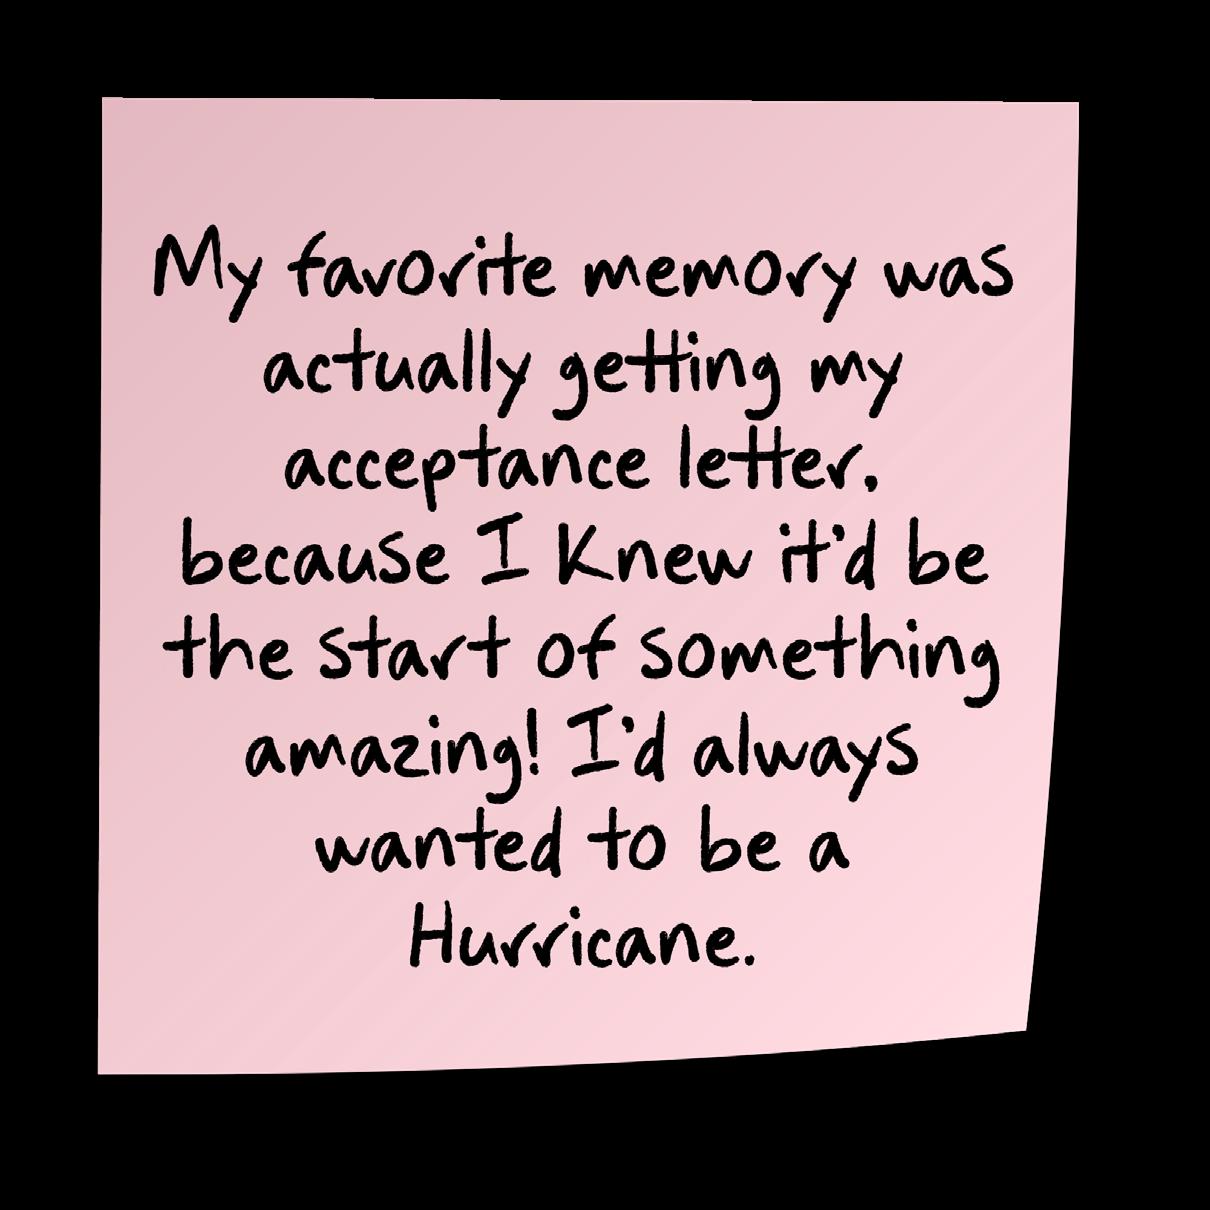 My favorite memory was
actually getting my
acceptance letter,
because I Knew it'd be
the start of something
amazing! I'd always
wanted to be a
Hurricane.